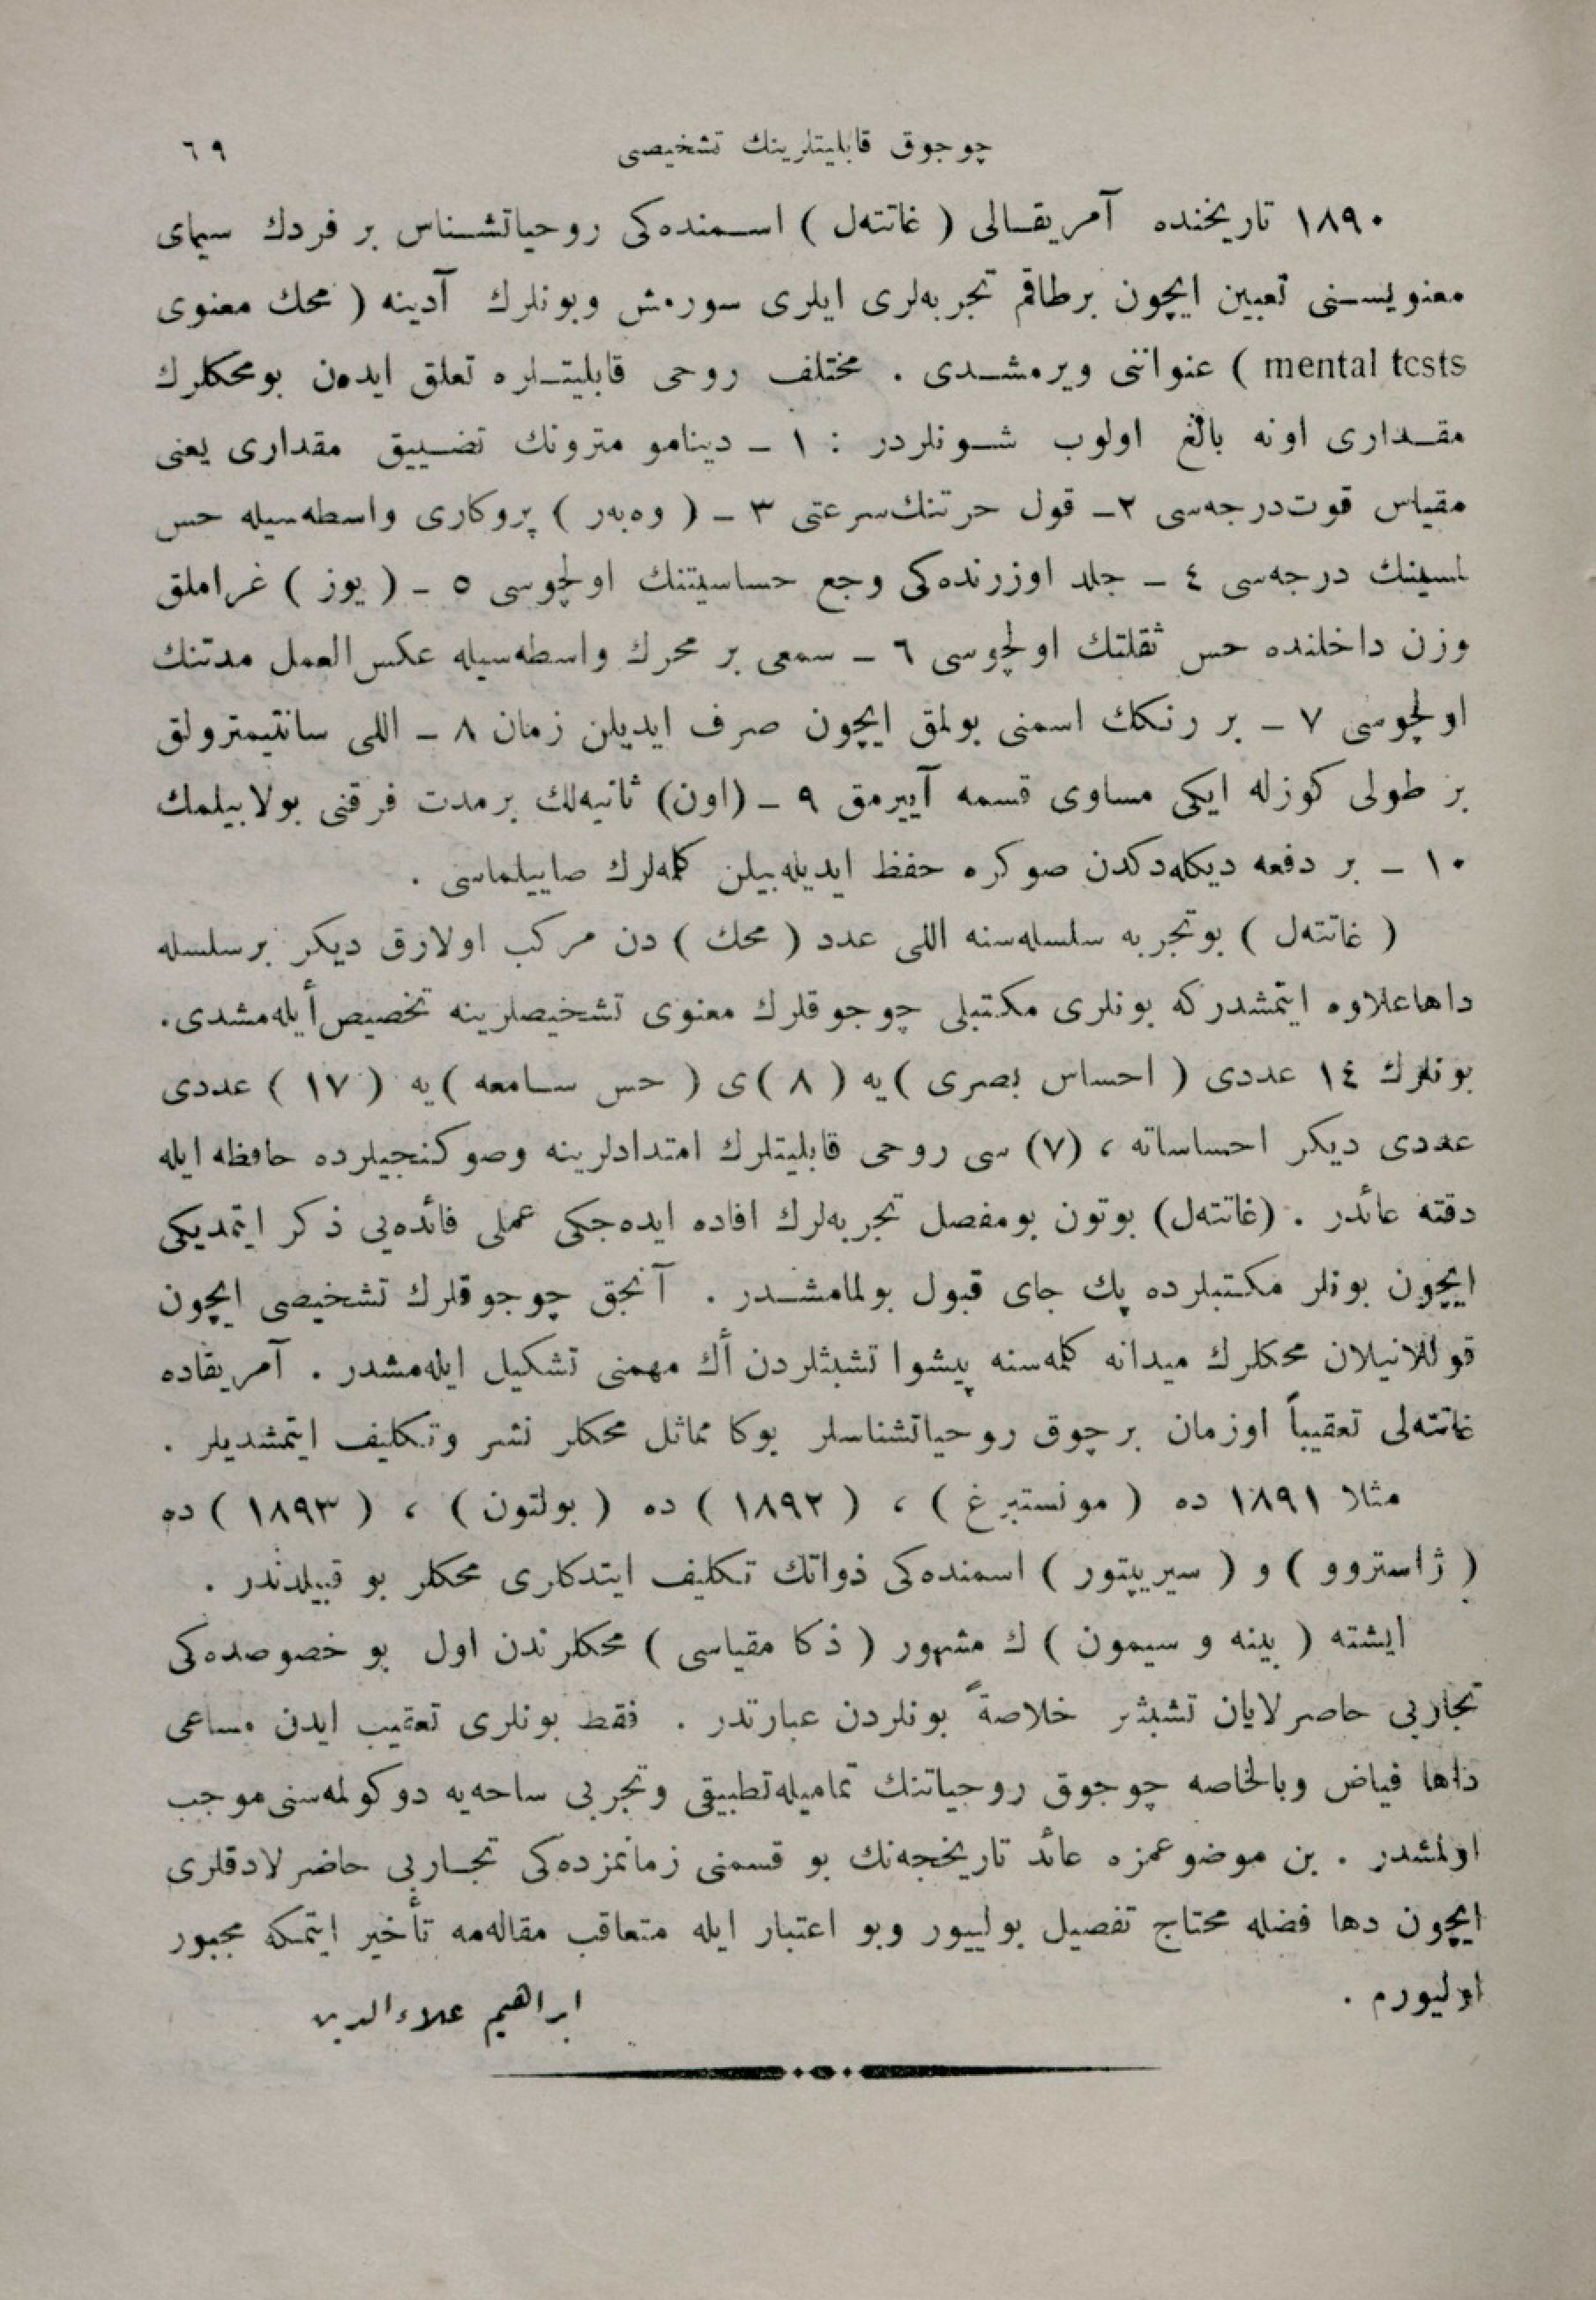 چوجوق قابليتلرينك تشخيصى ٦٩
١٨٩٠ تاريخنده آمريقالى ( غاتته‌ل ) اسمنده‌كى روحياتشناس بر فردك سيماى
معنويسنى تعيين ايچون برطاقم تجربه‌لرى ايلرى سورمش وبونلرك آدينه ( محك معنوى
mental tests ) عنواننى ويرمشدى . مختلف روحى قابليتلره تعلق ايدەن بومحكلرك
مقدارى اونه بالغ اولوب شونلردر : ١ ـ دينامو مترونك تضييق مقدارى يعنى
مقياس قوت‌درجه‌سى ٢ـ قول حرتنك‌سرعتى ٣ ـ ( وه‌به‌ر ) پروكارى واسطه‌سيله حس
لمسينك درجه‌سى ٤ ـ جلد اوزرنده‌كى وجع حساسيتنك اولچوسى ٥ ـ ( يوز ) غراملق
وزن داخلنده حس ثقلتك اولچوسى ٦ ـ سمعى بر محرك واسطه‌سيله عكس العمل مدتنك
اولچوسى ٧ ـ بر رنكك اسمنى بولمق ايچون صرف ايديلن زمان ٨ ـ اللى سانتيمترولق
بر طولى كوزله ايكى مساوى قسمه آييرمق ٩ ـ (اون) ثانيه‌لك برمدت فرقنى بولابيلمك
١٠ ـ بر دفعه ديكله‌دكدن صوكره حفظ ايديله‌بيلن كلمه‌لرك صاييلماسى .
( غاتته‌ل ) بوتجربه سلسله‌سنه اللى عدد ( محك ) دن مركب اولارق ديكر برسلسله
داهاعلاوه ايتمشدركه بونلرى مكتبلى چوجوقلرك معنوى تشخيصلرينه تخصيص أيله‌مشدى.
بونلرك ١٤ عددى ( احساس بصرى )يه ( ٨ )ى ( حس سامعه )يه ( ١٧ ) عددى
عددى ديكر احساساته ، (٧) سى روحى قابليتلرك امتدادلرينه وصوكنجيلرده حافظه ايله
دقته عائدر . (غاتته‌ل) بوتون بومفصل تجربه‌لرك افاده ايده‌جكى عملى فائده‌يى ذكر ايتمديكى
ايچون بونلر مكتبلرده پك جاى قبول بولمامشدر . آنجق چوجوقلرك تشخيصى ايچون
قوللانيلان محكلرك ميدانه كلمه‌سنه پيشوا تشبثلردن أك مهمنى تشكيل ايله‌مشدر . آمريقاده
غاتته‌لى تعقيباً اوزمان برچوق روحياتشناسلر بوكا مماثل محكلر نشر وتكليف ايتمشديلر .
مثلا ١٨٩١ ده ( مونستبرغ ) ، ( ١٨٩٢ ) ده ( بولتون ) ، ( ١٨٩٣ ) ده
( ژاستروو ) و ( سيريپتور ) اسمنده‌كى ذواتك تكليف ايتدكلرى محكلر بو قبيلدندر .
ايشته ( بينه و سيمون ) ك مشهور ( ذكا مقياسى ) محكلرندن اول بو خصوصده‌كى
تجاربى حاضرلايان تشبثلر خلاصةً بونلردن عبارتدر . فقط بونلرى تعقيب ايدن مساعى
داها فياض وبالخاصه چوجوق روحياتنك تماميله‌تطبيقى وتجربى ساحه‌يه دوكولمه‌سنى‌موجب
اولمشدر . بن موضوعمزه عائد تاريخچه‌نك بو قسمنى زمانمزده‌كى تجاربى حاضرلادقلرى
ايچون دها فضله محتاج تفصيل بولييور وبو اعتبار ايله متعاقب مقاله‌مه تأخير ايتمكه مجبور
اوليورم .
ابراهيم علاءالدين